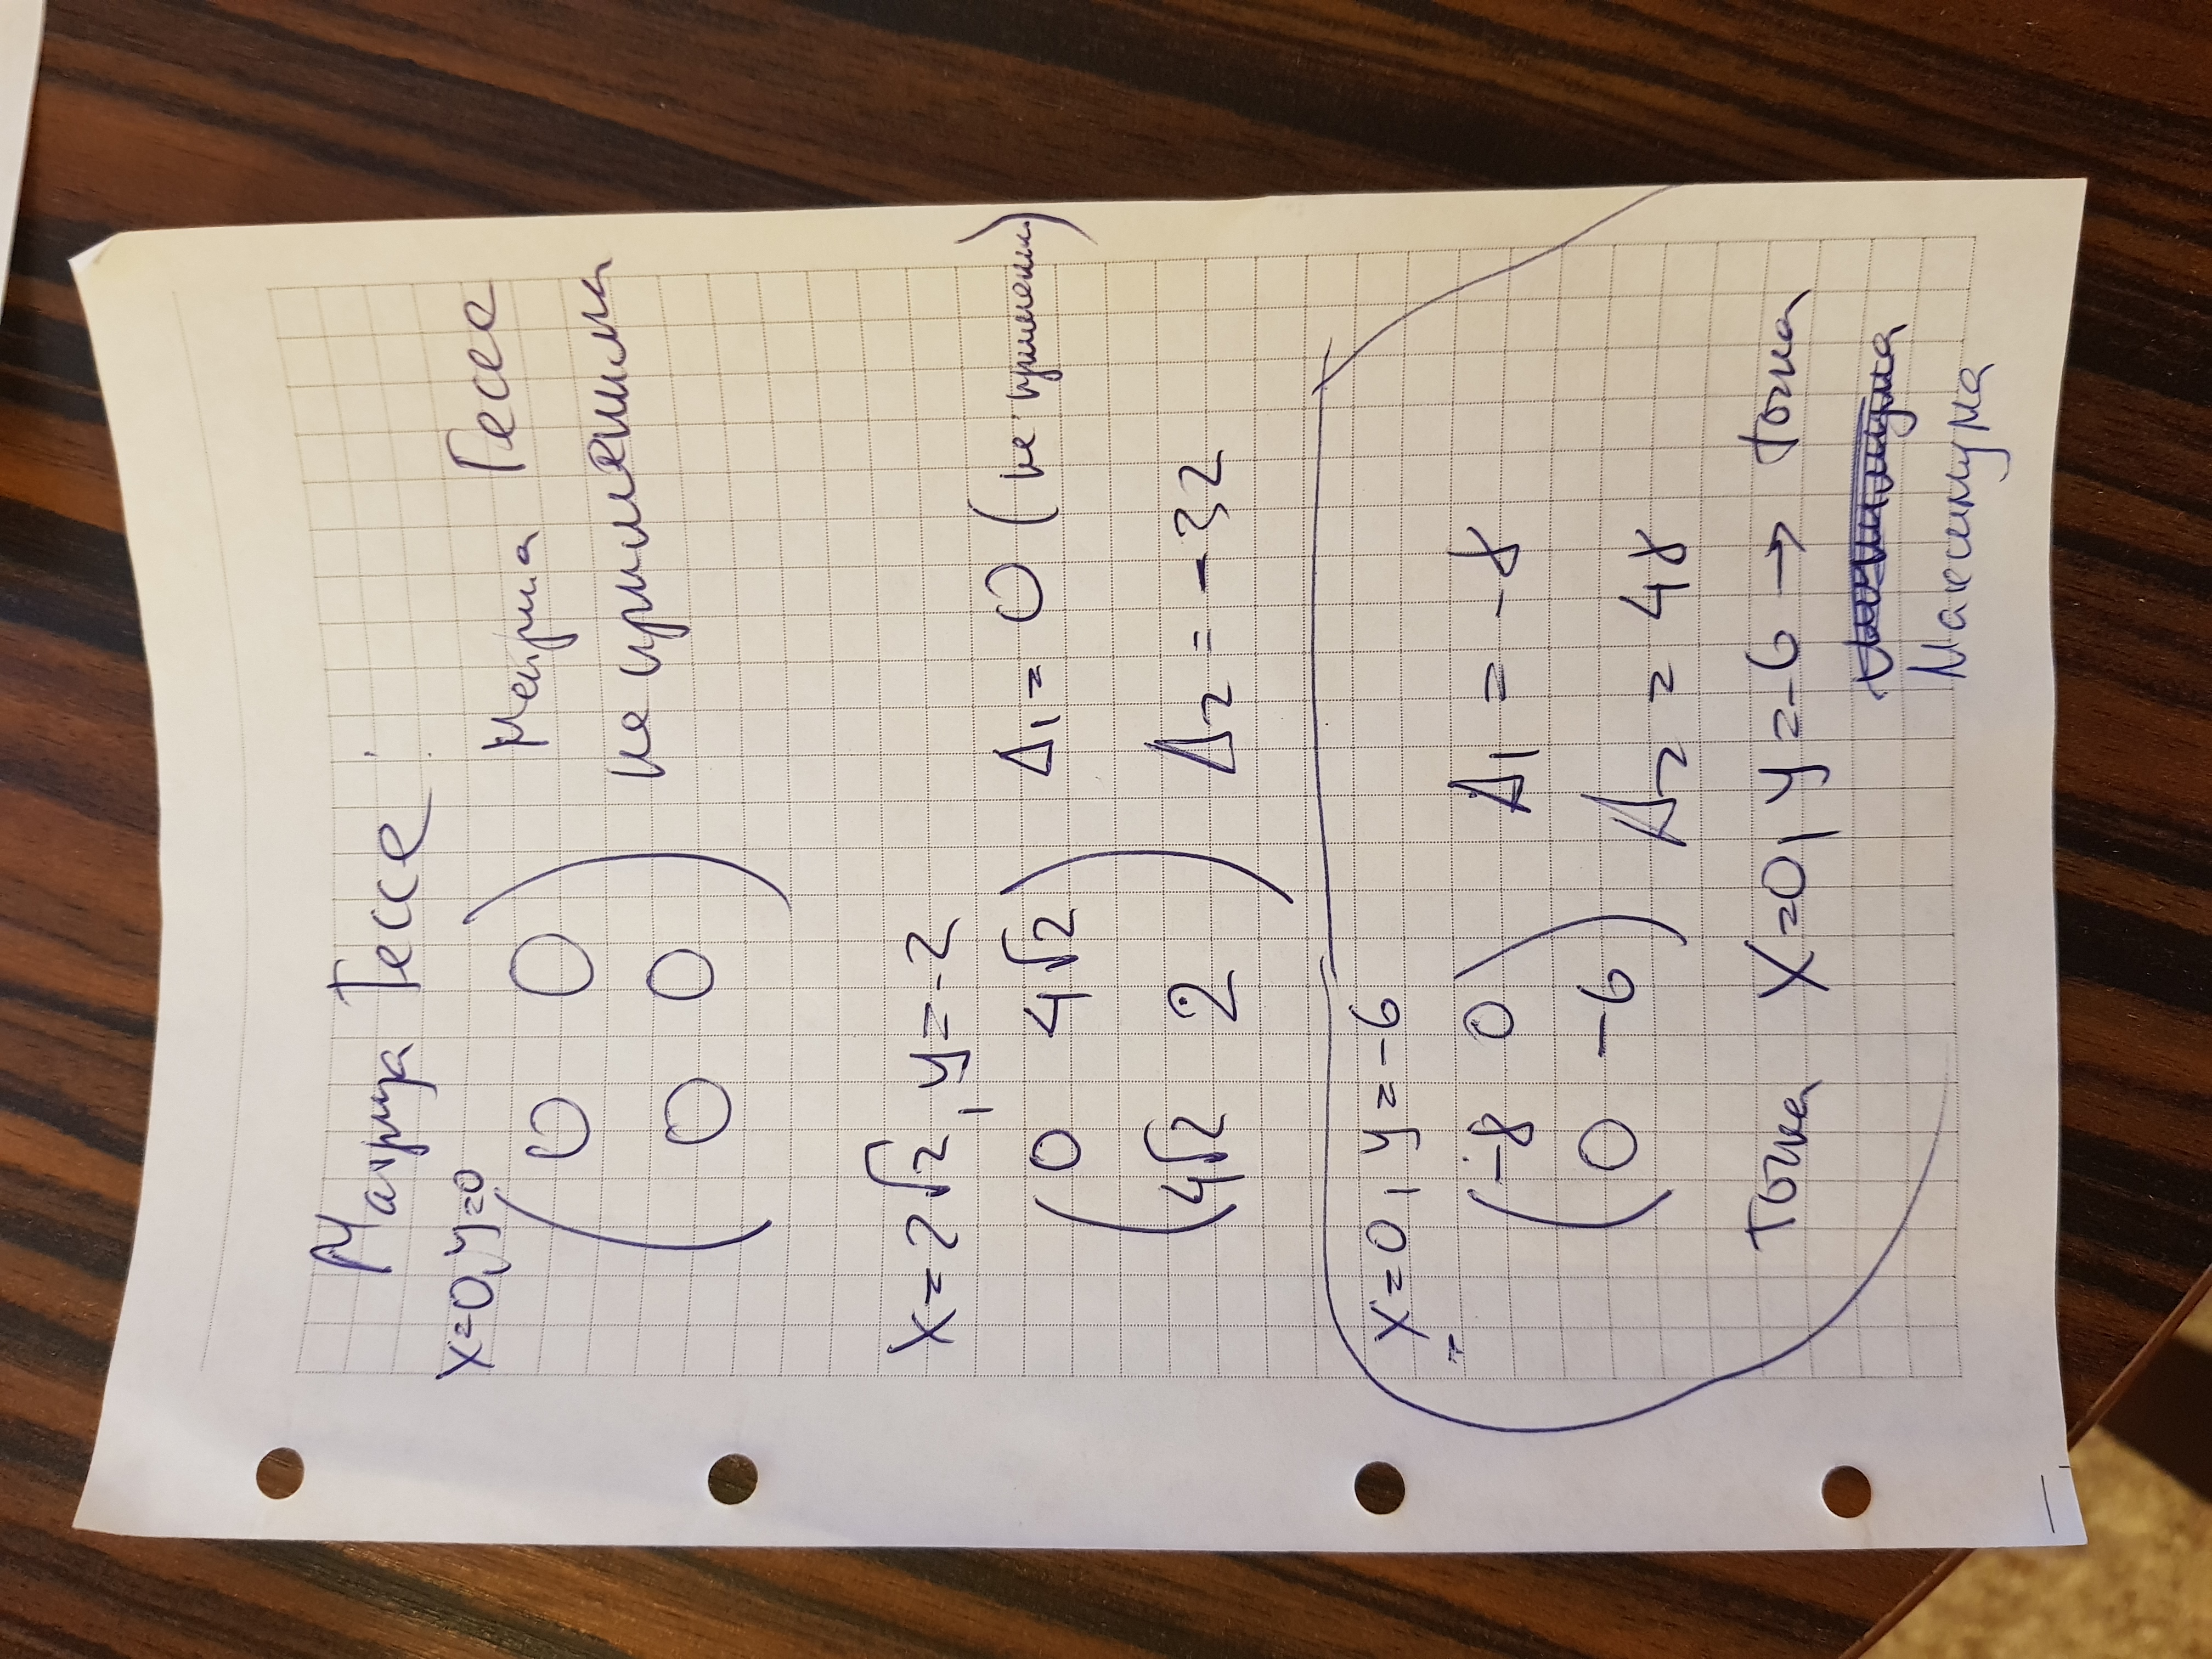 Матрица Гессе:
x=0, y=0
0 0
0 0
Матрица Гессе
не применима
x=2√2, y=-2
0 4√2
4√2 2
Δ1 = 0 (не примен.)
Δ2 = -32
x=0, y=-6
-8 0
0 -6
Δ1 = -8
Δ2 = 48
Точка x=0, y=-6 → точка
Максимума